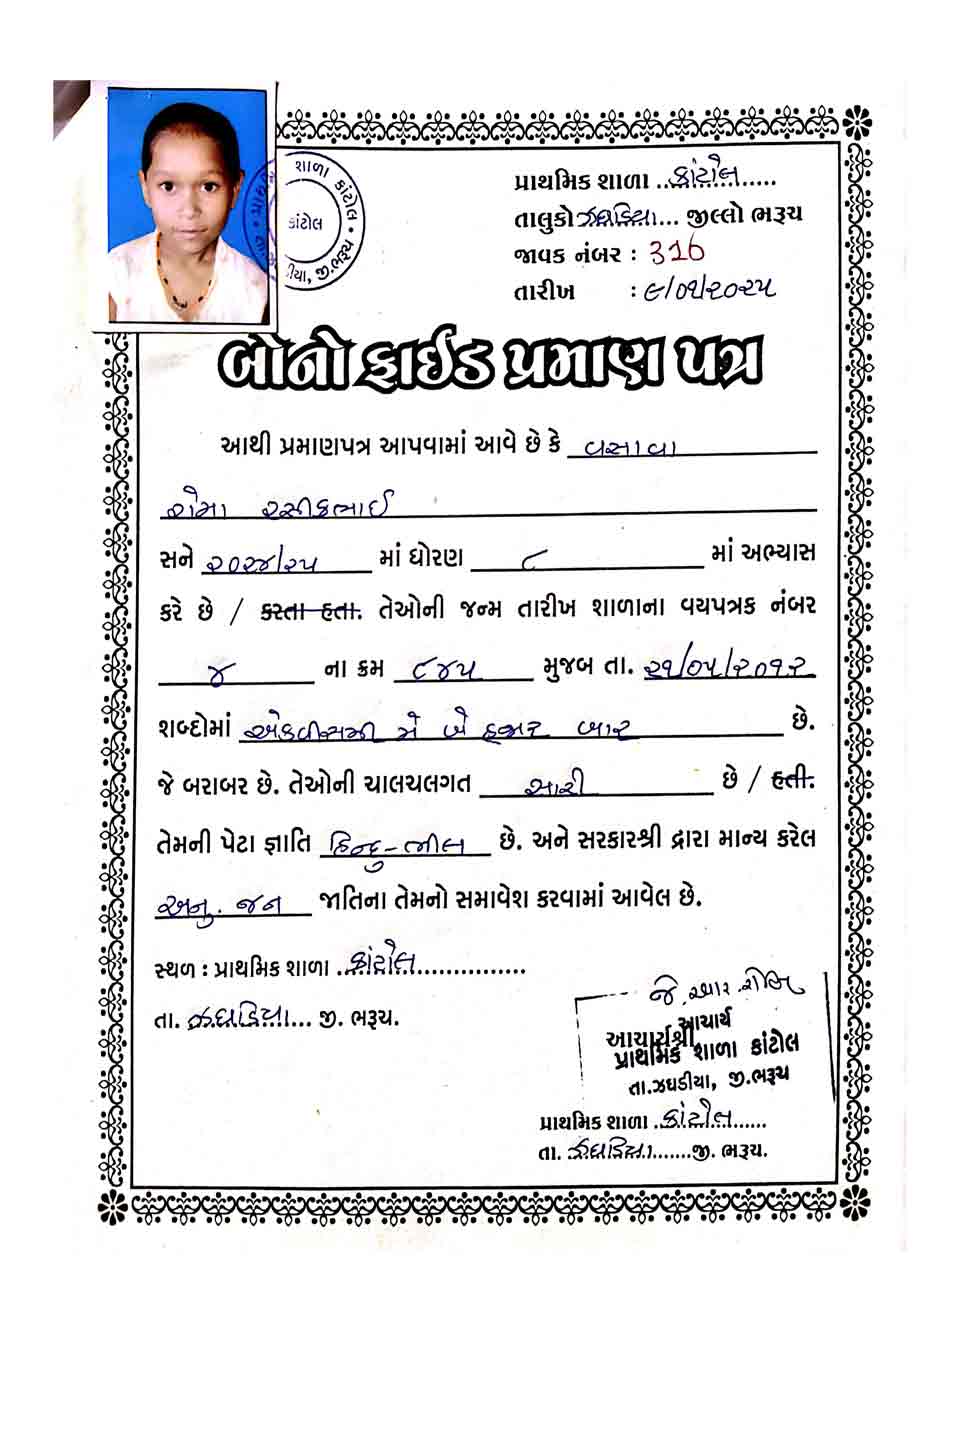 શાળા કાંટોલ
કાંટોલ
જી.ભરૂચ
પ્રાથમિક શાળા ..કાંટોલ.....
તાલુકો ઝઘડિયા... જીલ્લો ભરૂચ
જાવક નંબર : 316
તારીખ : ૯/૦૧/૨૦૨૫
બોનોફાઈડ પ્રમાણ પત્ર
આથી પ્રમાણપત્ર આપવામાં આવે છે કે વસાવા
રોમા રસીકભાઈ
સને ૨૦૨૪/૨૫ માં ધોરણ ૮ માં અભ્યાસ
કરે છે / કરતા હતા. તેઓની જન્મ તારીખ શાળાના વયપત્રક નંબર
૪ ના ક્રમ ૮૪૫ મુજબ તા. ૨૧/૦૫/૨૦૧૨
શબ્દોમાં એકવીસમી મે બે હજાર બાર છે.
જે બરાબર છે. તેઓની ચાલચલગત સારી છે / હતી.
તેમની પેટા જ્ઞાતિ હિન્દુ-ભીલ છે. અને સરકારશ્રી દ્વારા માન્ય કરેલ
અનુ. જન જાતિના તેમનો સમાવેશ કરવામાં આવેલ છે.
સ્થળ : પ્રાથમિક શાળા ..કાંટોલ................
તા. ઝઘડિયા... જી. ભરૂચ.
જે. આર.
આચાર્ય
આચાર્યશ્રી,
પ્રાથમિક શાળા કાંટોલ
તા.ઝઘડીયા, જી.ભરૂચ
પ્રાથમિક શાળા ..કાંટોલ......
તા. ઝઘડિયા.......જી. ભરૂચ.